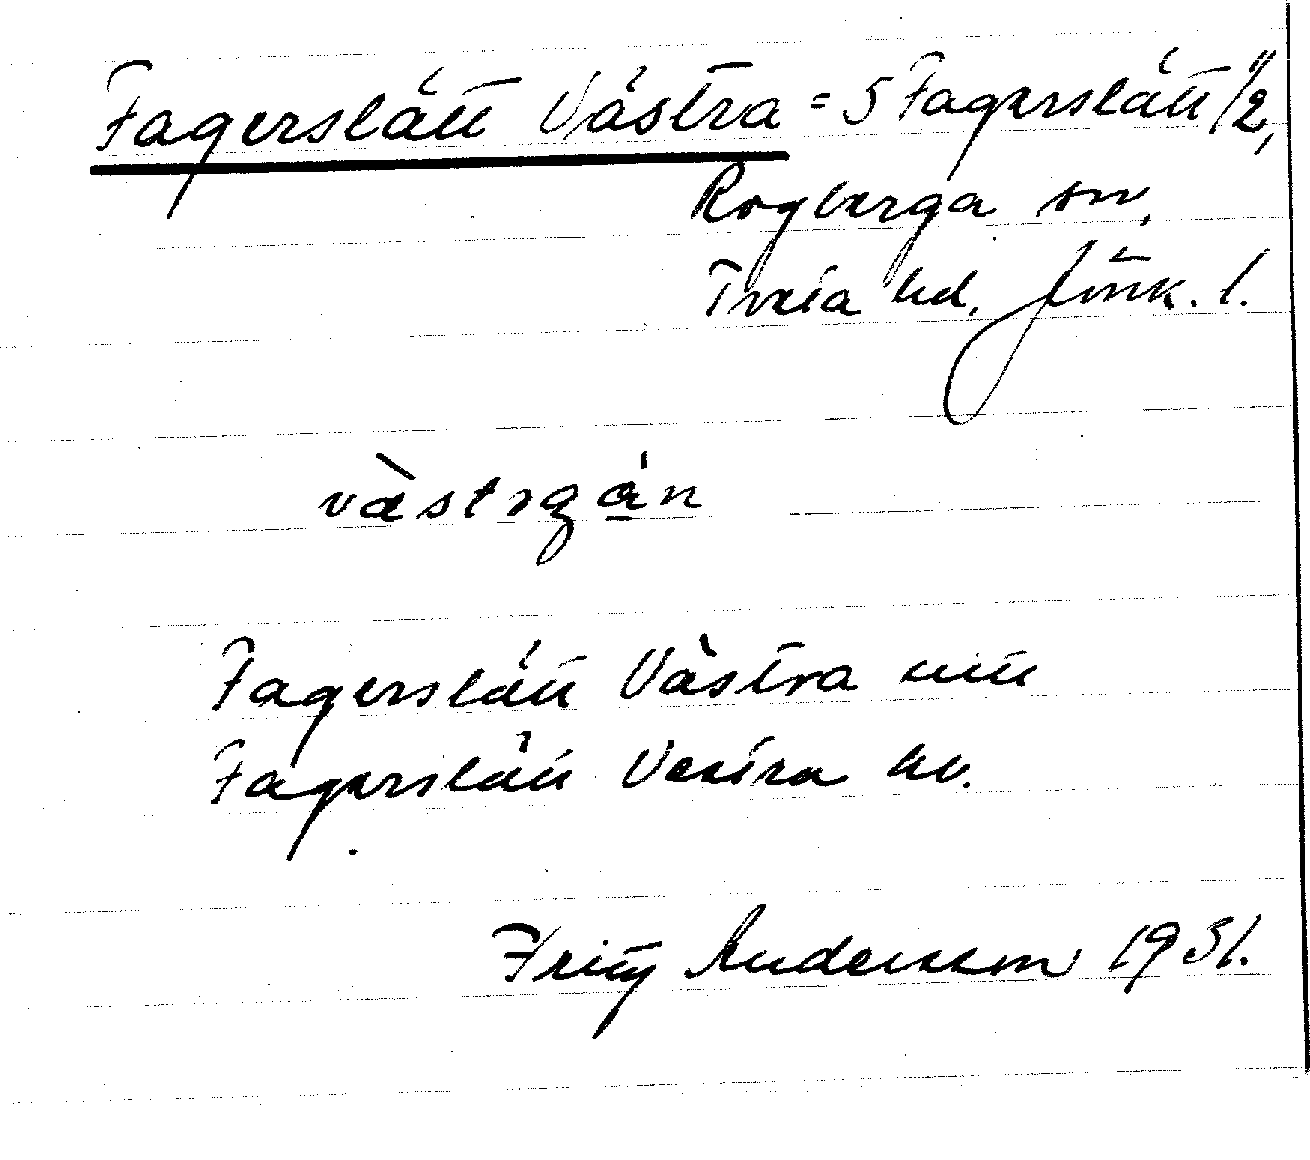 Fagerslätt Västra = 5 Fagerslätt 1/2,
Rogberga sn,
Tveta hd, Jönk. l.
västrgån
Fagerslätt Västra
Fagerslätt Vestra
Fritz Andersson 1931.